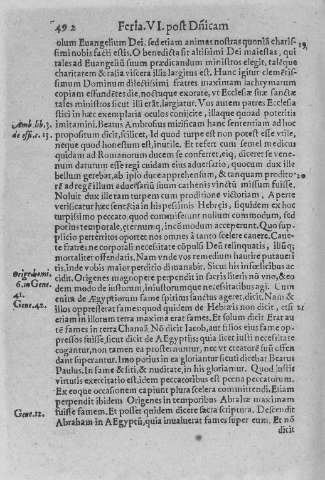 492 Feria. VI. post Dñicam
olum Euangelium Dei, sed etiam animas nostras quoniã charis-
simi nobis facti estis. O benedicta sit altissimi Dei maiestas, qui
tales ad Euangelij suum prædicandum ministros elegit, talẽque
charitatem & talia viscera illis largitus est. Hunc igitur clementis-
simum Dominum dilectissimi fratres maximam lachrymarum
copiam effundẽtes die, noctuque exorate, vt Ecclesiæ suæ sanctæ
tales ministros sicut illi erãt, largiatur. Vos autem patres Ecclesiæ
stici in hæc exemplaria oculos conijcite, illaque quoad poteritis
imitamini. Beatus Ambrosius missicam hanc sententiam ad hoc
propositum dicit, scilicet, Id quod turpe est non potest esse vtile,
neque quod honestum est, inutile. Et refert cum semel medicus
quidam ad Romanorum ducem se conferret, eiq; diceret se vene-
num daturum esse regi cuidam eius aduersario, quocum dux ille
bellum gerebat, ab ipso duce apprehensum, & tanquam prodito-
rẽ ad regẽ illum aduersariũ suum cathenis vinctũ missum fuisse.
Noluit dux ille tam turpem cum proditione victoriam. Aperte
verificatur hæc sentẽtia in his pessimis Hebręis, siquidem ex hoc
turpissimo peccato, quod commiserunt nolium commodum, sed
potius temporale, & æternumq; incõmodum acceperunt. Quo sup-
plicio perterritos oportet nos omnes à tanto scelere cauere. Caue-
te fratres ne corporali necessitate cõpulsi Deũ relinquatis, illũq;
mortaliter offendatis. Nam vnde vos remedium habere putaueri-
tis, inde vobis maior perditio dimanabit. Sicut his infœlicibus ac-
cidit. Origenes magnopere perpendit in sacris literis nõ vno, & eo-
dem modo de iustorum, iniustorumque necessitatibus agi. Cum
enim de Ægyptiorum fame spiritus sanctus ageret, dicit. Nam &
illos oppresserat fames: quod quidem de Hebræis non dicit, etsi
etiam in illorum terra maxima erat fames. Et solum dicit Erat au
tẽ fames in terra Chanaã. Nõ dicit Iacob, aut filios eius fame op-
pressos fuisse, sicut dicit de Ægyptijs: quia sicet iusti necessitate
cogantur, non tamen ea prosternuntur, nec vt creatorẽ suũ offen
dant superantur. Imo potius in ea gloriantur sicuti dicebat Beatus
Paulus. In fame & siti, & nuditate, in his gloriamur. Quod iustis
virtutis exercitatio est, idem peccatoribus est pœna peccatorum.
Ex eoque occasionem capiunt plura scelera committendi. Etiam
perpendit ibidem Origenes in temporibus Abrahæ maximam
fuisse famem. Et posset quidem dicere sacra scriptura. Descendit
Abraham in AEgyptũ, quia inualuerat fames super eum. Et nõ
dicit
19
Amb. lib. 3.
de offi. c. 15.
20
Orige. homi.
6. in Gene.
41.
Gene. 42.
Gene. 12.